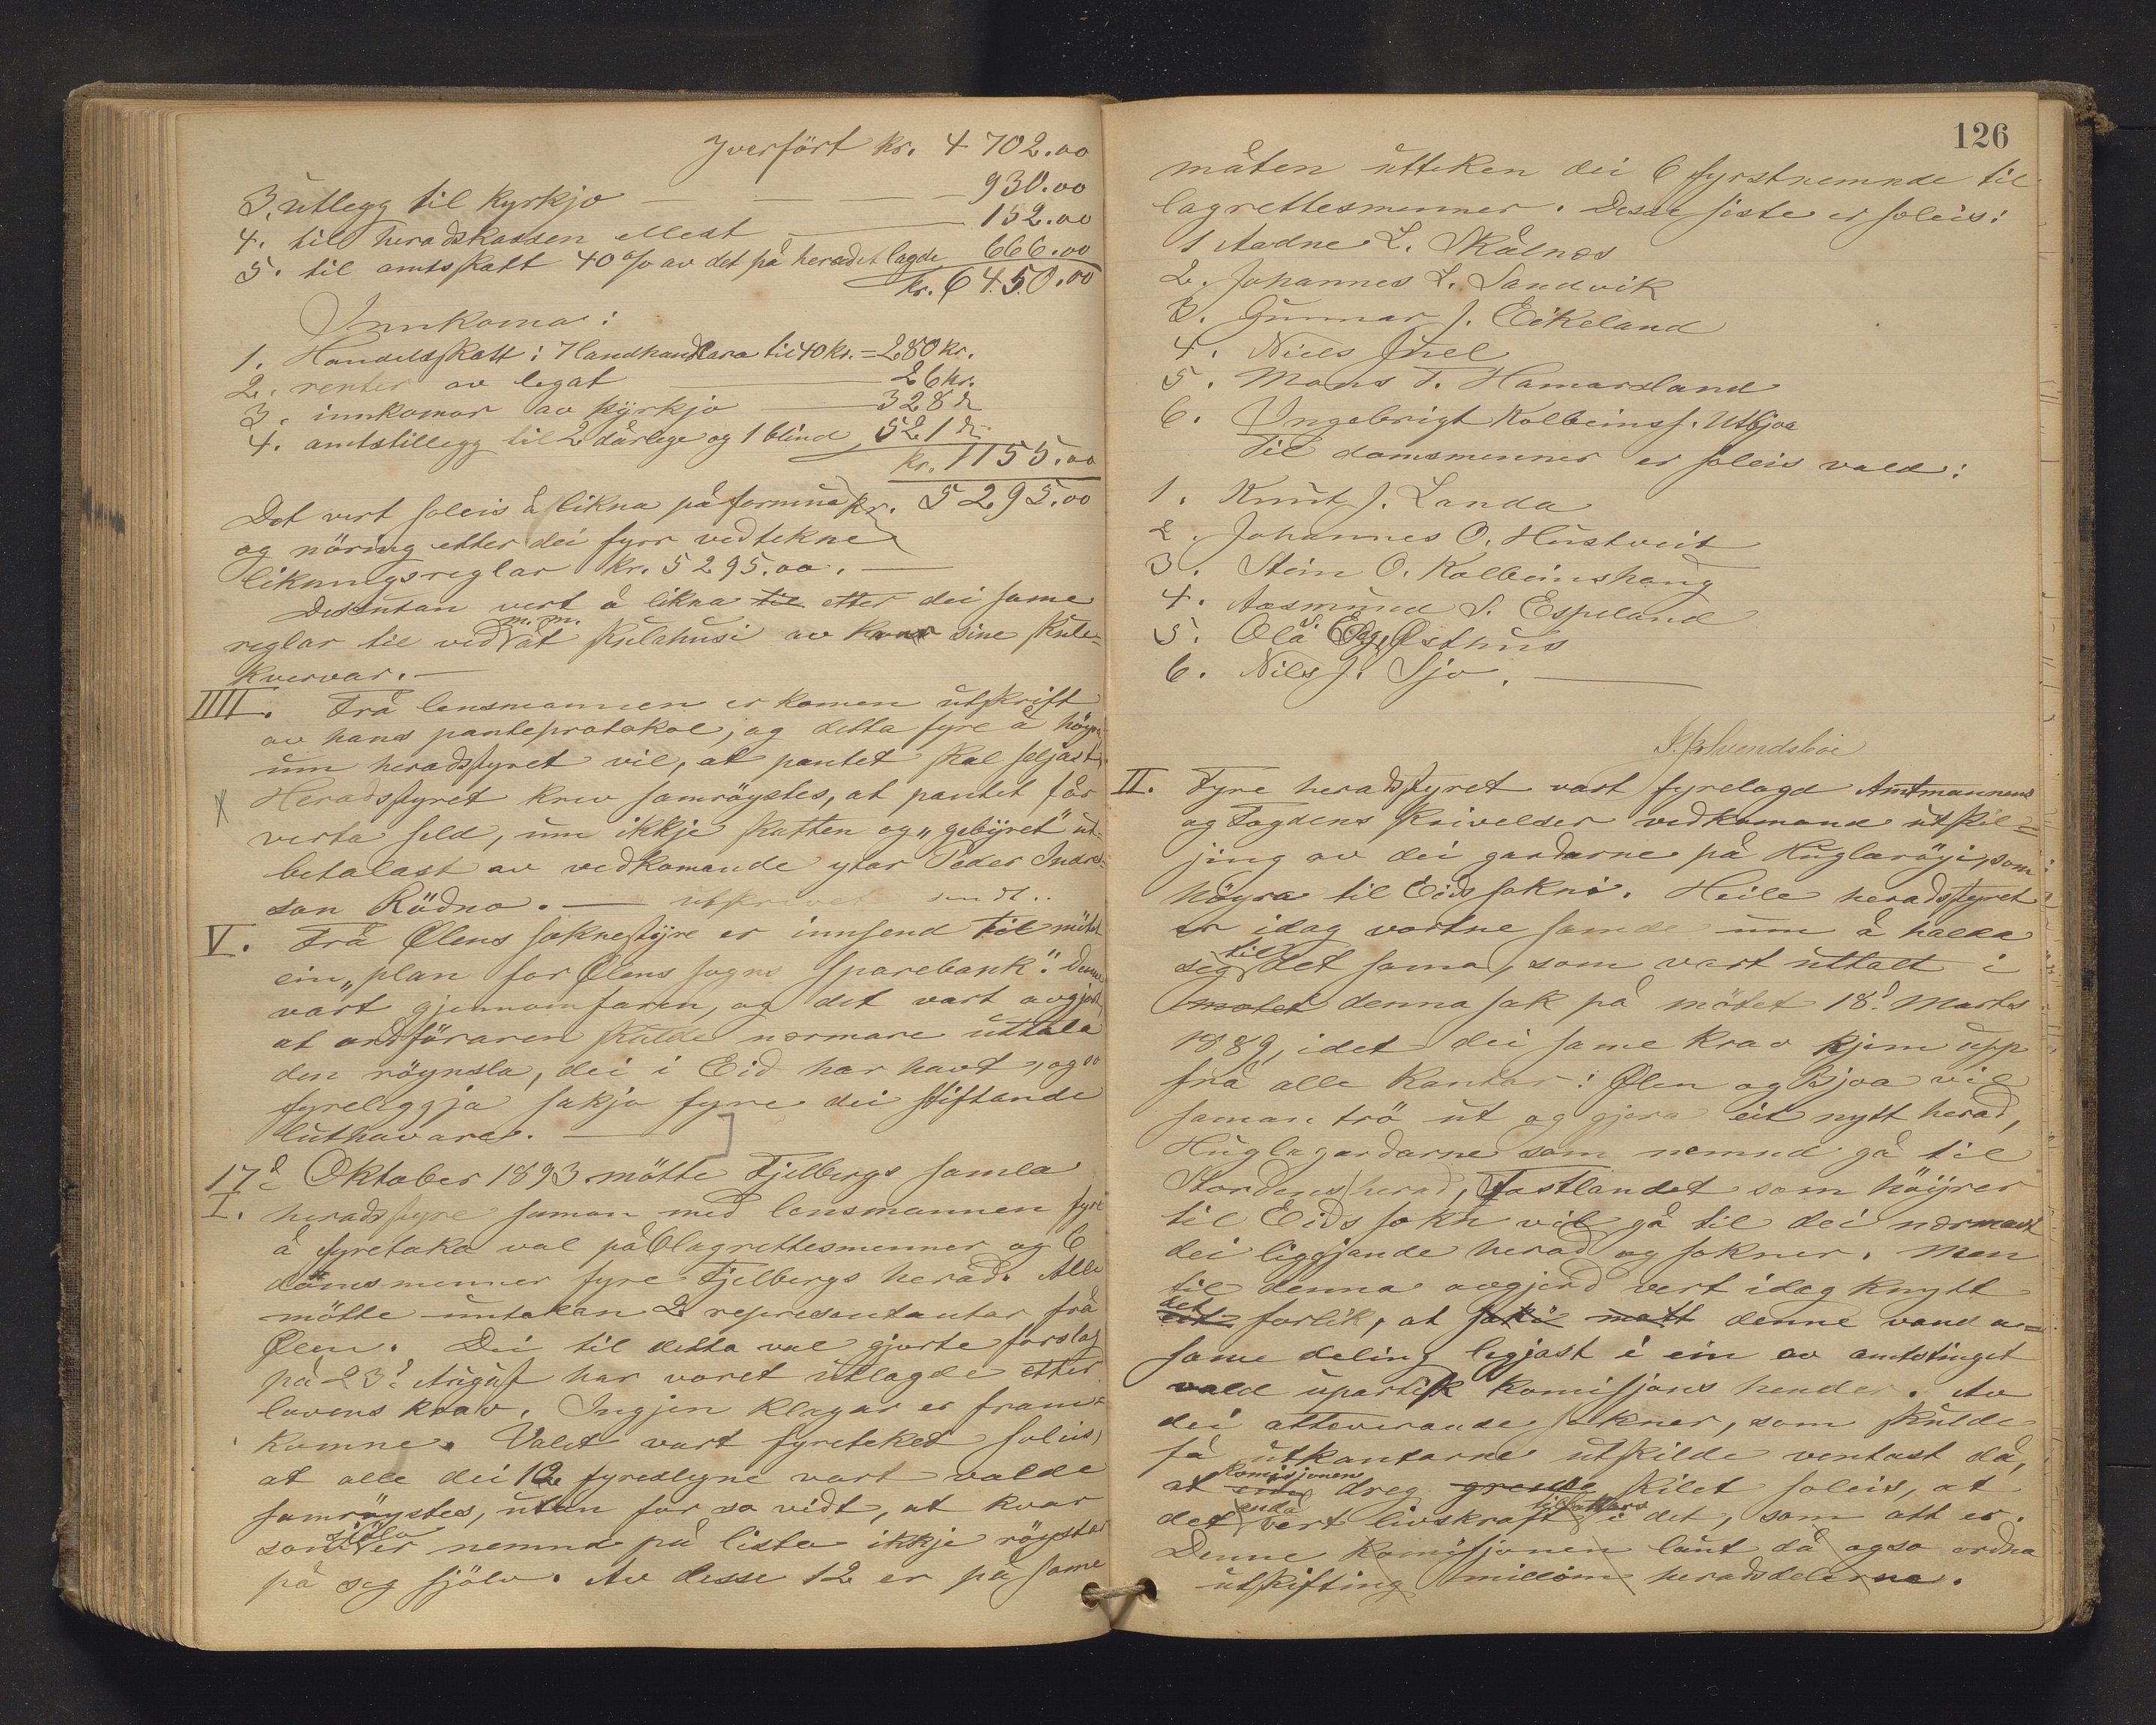 Yverfört kr. 4 702.00
3. utlegg til kyrkjo — — — 930.00
4. till heradskassen ellest — 152.00
5. til amtsskatt 40 % av det på heradet lagde 666.00
Kr. 6450.00
Innkoma:
1. Handelsskatt: 7 landhandlara til 40 kr. = 280 kr.
2. renter av legat — 26 kr.
3. innkomor av kyrkjo — 328 "
4. amtstillegg til 2 dårlege og 1 blind 521 "
kr. 1155.00
Det vert soleis å likna på formue kr. 5295.00
og näring etter dei fyrr vedtekne
likningsreglar kr. 5295.00. —
Dessutan vert å likna til etter dei same
reglar til ved m. m. åt skulahusi av kvar sine skule-
kvervar. —
IIII. Frå lensmannen er komen utskrift
av hans panteprotokol, og detta fyre å höyra
um heradsstyret vil, at pantet skal seljast.
Heradsstyret krev samröystes, at pantet får
verta seld, um ikkje skatten og "gebyret" ut-
betalast av vedkomande ytar Peder Indre-
son Rödno. — utskrivet sendt..
V. Frå Ølens soknestyre er innsend til mötet
ein "plan for Ølens sogns sparebank". Denne
vart gjennomfaren, og det vart avgjort,
at ordföraren skulde nærmare uttala
den röynsla, dei i Eid har havt, og so
fyreleggja sakjo fyre dei stiftande
luthavarar. —
17d Oktober 1893 mötte Fjelbergs samla
I. heradsstyre saman med lensmannen fyre
å fyretaka val på 6 lagrettesmenner og 6
domsmenner fyre Fjelbergs herad. Alle
mötte untakan 2 representantar frå
Ølen. Dei til detta val gjorte forslag
på 23d August har voret utlagde etter
lovens krav. Ingjen klagar er fram-
komne. Valet vart fyreteket soleis,
at alle dei 12 fyreslegne vart valde
samröystes, utan for so vidt, at kvar
som sjölv er nemnd på lista ikkje röystar
på seg sjölv. Av desse 12 er på same
126
måten uttekne dei 6 fyrstnemnde til
lagrettesmenner. Desse siste er soleis:
1 Aadne L. Skålnes
2. Johannes L. Sandvik
3. Gunnar J. Eikeland
4. Niels Juel
5. Mons T. Hamarsland
6. Ingebrigt Kolbeinss. Utbjoa
Til domsmenner er soleis vald:
1. Knut J. Landa
2. Johannes O. Hustveit
3. Stein O. Kolbeinshaug
4. Aasmund S. Espeland
5. Ola Østhus
6. Nils J. Sjo. —
Svendsböe
II. Fyre heradsstyret vart fyrelagd Amtmannens
og Fogdens skrivelser vedkomand utskil-
jing av dei gardarne på Huglaröyi, som
höyra til Eids sokni. Heile heradsstyret
er idag vortne samde um å halda
seg til det sama, som vart uttalt i
motet denna sak på mötet 18d Marts
1889, idet dei same krav kjem upp
frå alle kantar: Ølen og Bjoa vil
saman trö ut og gjera eit nytt herad,
Huglagardarne som nemnd gå til
Stordens herad, Fastlandet som höyrer
til Eids sokn vil gå til dei nærmast
dei liggjande herad og sokner. Men
til denna avgjerd vert idag knytt
det forlik, at denne vand a-
same deling legjast i ein av amtstinget
vald upartisk komissjons hender. Av
dei attverande sokner, som skulde
få utkantarne utskilde ventast då,
at komissjonen dreg grensa skilet soleis, at
det endå vert livskraft til fattars i det, som att er.
Denne komissjonen laut då ogso ordna
utskifting millom heradsdelerne.